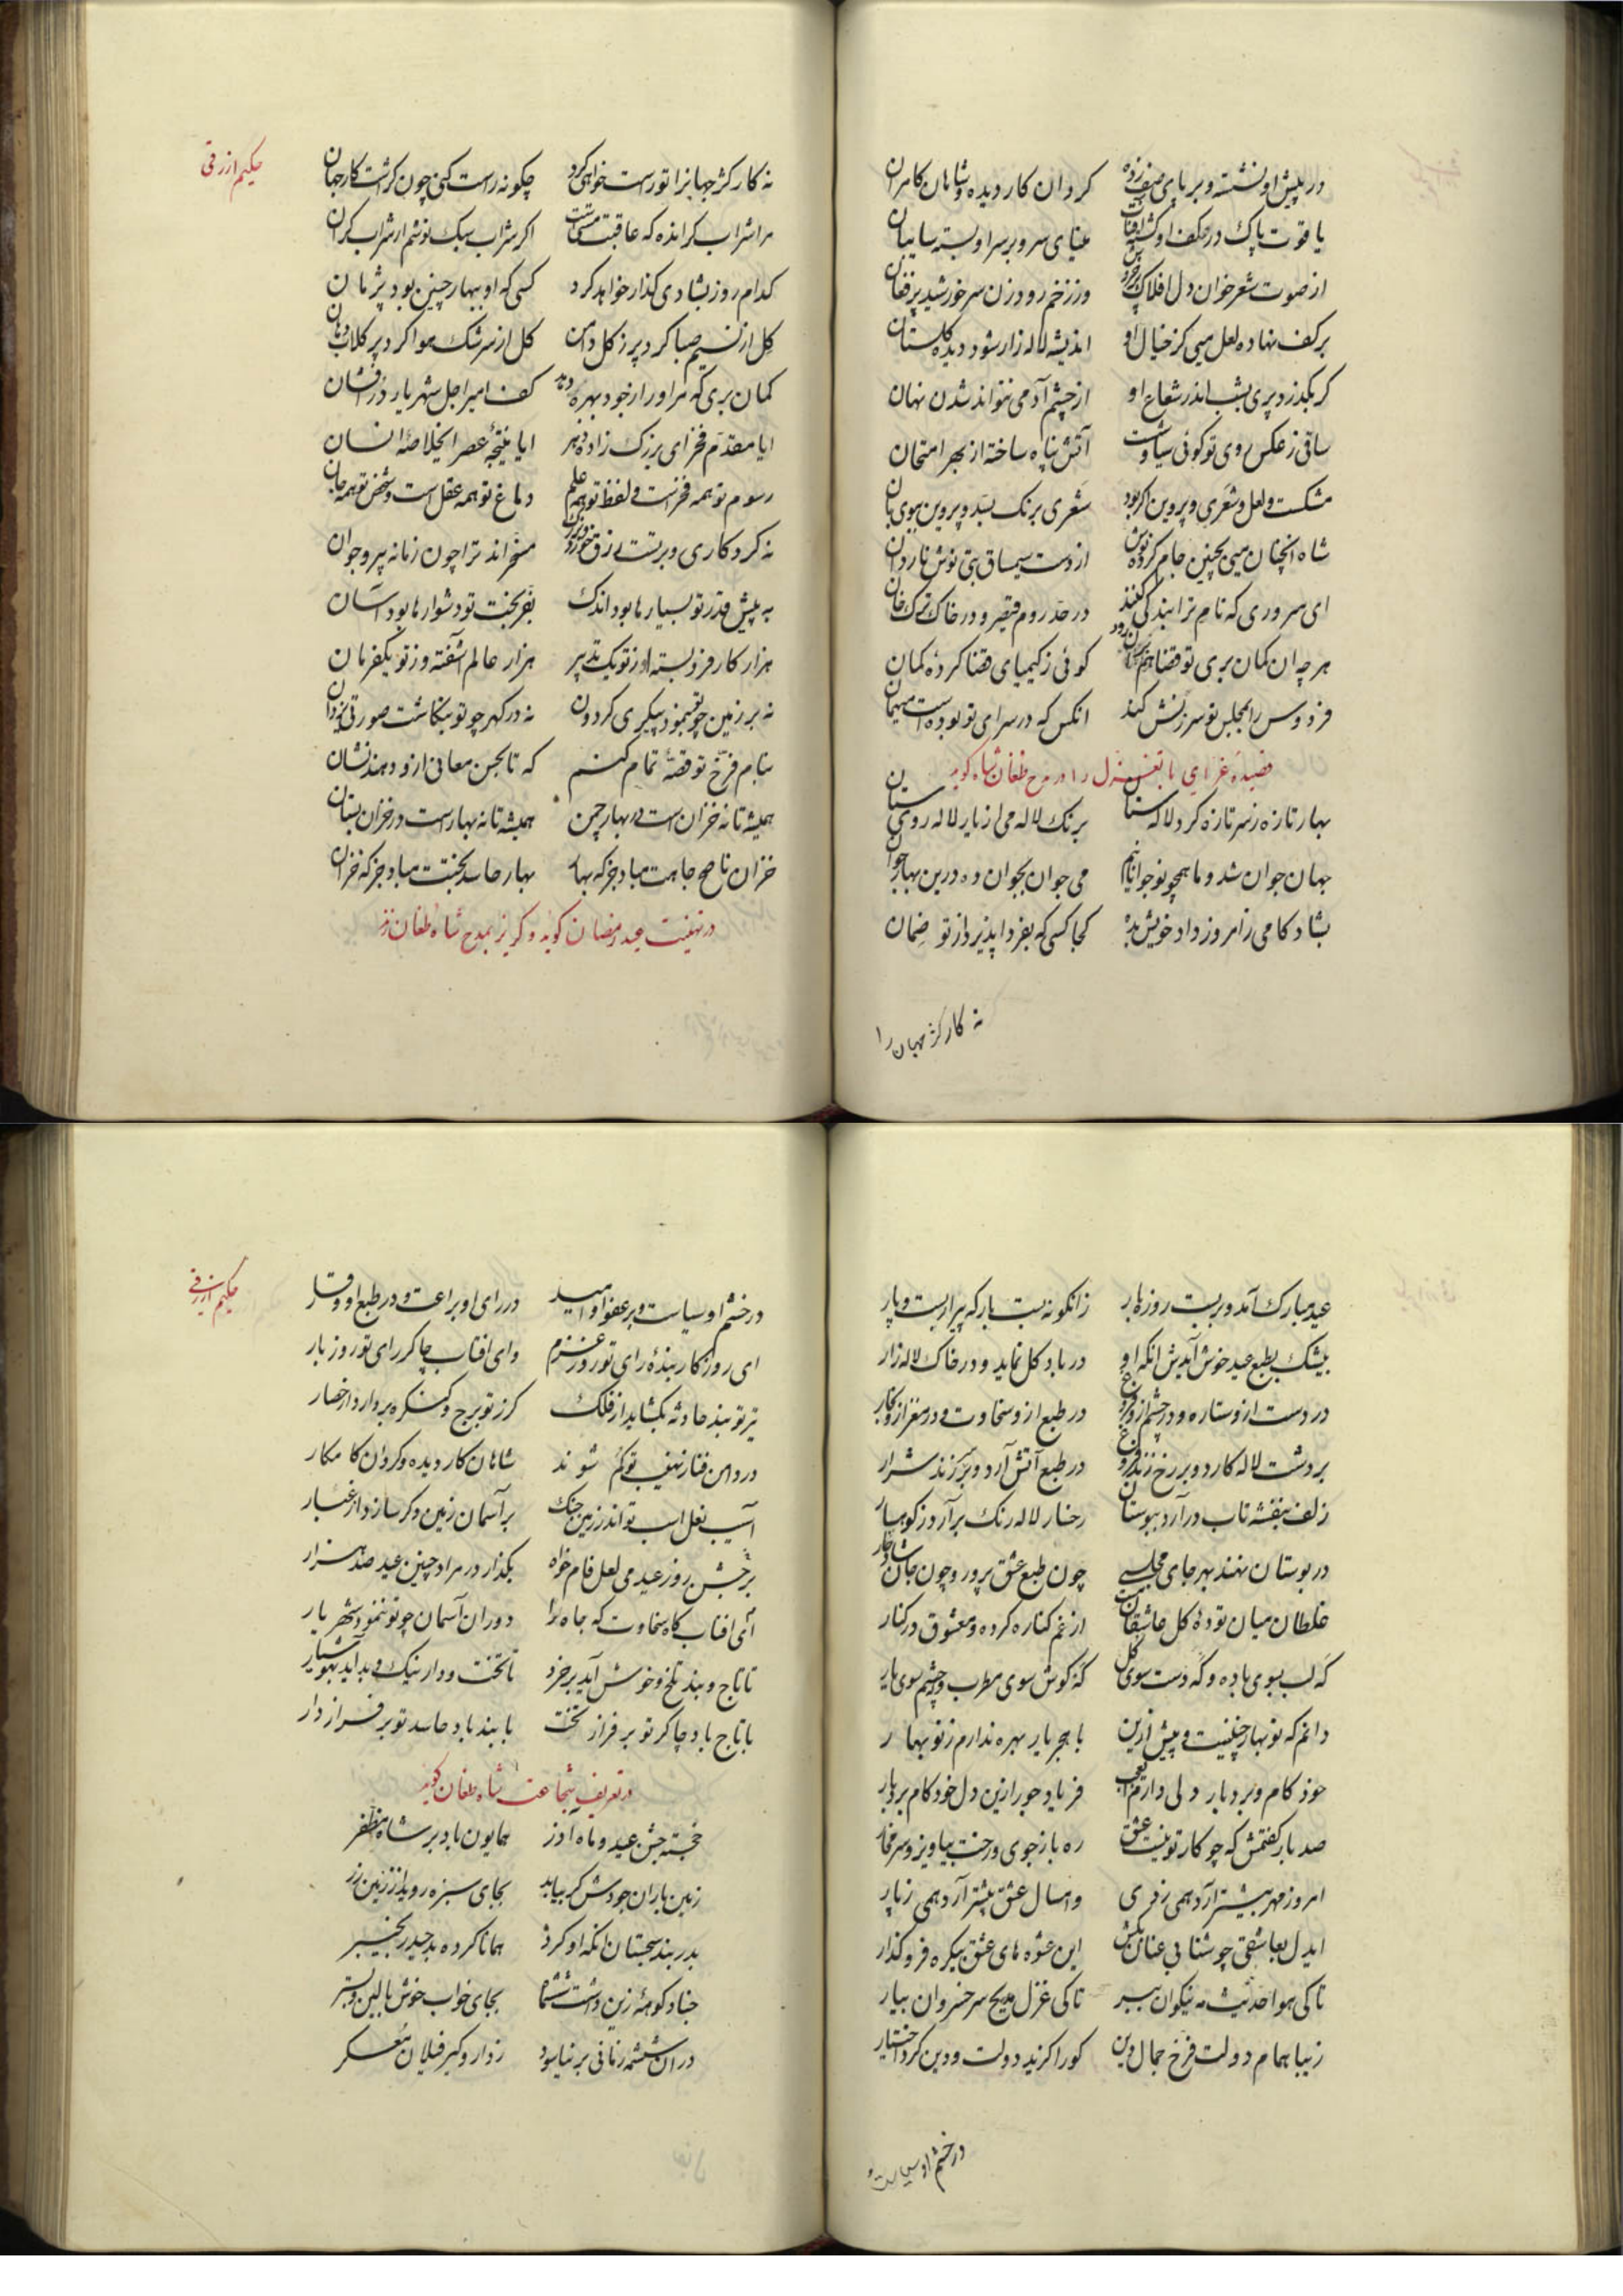 در پیش او نشسته و بر پای صف زده کردان کار دیده و شاهان کامران
یاقوت پاک در کف او بسته سایبان
از صوت شعر خوان دل افلاک وز زخم رود زن سر خورشید پر فغان
بر کف نهاده لعل میی کز خیال او اندیشه لاله زار شود دیده گلستان
کر بگذرد پری بشب اندر شعاع او از چشم آدمی نتواند شدن نهان
ساقی ز عکس روی تو کوئی سیاوشت آتش پناه ساخته از بهر امتحان
مشکست و لعل و شعری و پروین اکر بود شعری برنک بسد و پروین ببوی بان
شاه انچنان میی بچنین جام کرده نوش از دست سیمساق بتی نوش ناردان
ای سروری که نام ترا بندکی کنند در حد روم قیصر و در خاک ترک خان
هر چه ان کمان بری تو قضا هم بران رود کوئی ز کیمیای قضا کرده کمان
فردوس را بمجلس تو سرزنش کند انکس که در سرای تو بوده است میهمان
قصیده غرای با تغزل را در مدح طغان شاه کوید
بهار تازه ز سر تازه کرد لالستان برنک لاله می از یار لاله روی ستان
جهان جوان شد و ما همچو نو جوانانیم می جوان بجوان ده درین بهار جوان
بشاد کامی ز امروز داد خویش بده کجا کسی که بفردا پذیرد از تو ضمان
نه کار کژ جهان را
حکیم ازرقی
نه کار کژ جهانرا تو راست خواهی کرد چکونه راست کنی چون کژاست کار جهان
مرا شراب کران ده که عاقبت مستیست اکر شراب سبک نوشم ار شراب کران
کدام روز بشادی کذار خواهد کرد کسی که او ببهار چنین بود پژمان
کل از نسیم صبا کرد پر ز کل دامن کل از سرشک هوا کرد پر کلاب دهان
کمان بری که مر او را ز جود بهره دهد کف امیر اجل شهریار درافشان
ایا مقدم فخر ای بزرک زاده دهر ایا نتیجه عصر ای خلاصه انسان
رسوم تو همه فخرست و لفظ تو همه علم دماغ تو همه عقل است و شخص تو همه جان
نه کردکاری و بر تست رزق خورد و بزرک مسخراند ترا چون زمانه پیر و جوان
به پیش قدر تو بسیارها بود اندک بفر بخت تو دشوارها بود آسان
هزار کار فرو بسته و ز تو یک تدبیر هزار عالم آشفته وز تو یکفرمان
نه بر زمین چو تو بنمود پیکری کردون نه در کهر چو تو بنکاشت صورتی یزدان
بنام فرخ تو قصه تمام کنم که تا بحسن معانی ازو دهند نشان
همیشه تا نه خزان است در بهار چمن همیشه تا نه بهارست در خزان بستان
خزان ناصح جاهت مباد جز که بهار بهار حاسد بختت مباد جز که خزان
در تهنیت عید رمضان کوید و کریز بمدح شاه طغان زند
عید مبارک آمد و بربست روزه بار زانکونه بست بار که پیرار بست و پار
بیشک بطبع عید خوش آیدش انکه او در باد کل نماید و در خاک لاله زار
در دست ازو ستاره و در چشم ازو فروغ در طبع ازو سخاوت و در مغز ازو بخار
بر دشت لاله کارد و بر رخ زند فروغ در طبع آتش آرد و بر سر زند شرار
زلف بنفشه تاب در آرد ببوستان رخسار لاله رنک بر آرد ز کوهسار
در بوستان نهند بهر جای مجلسی چون طبع عشق پرور و چون جان شاد خوار
غلطان میان توده کل عاشقان مست از غم کناره کرده و معشوق در کنار
که لب بسوی باده و که دست سوی کل که کوش سوی مطرب و که چشم سوی یار
دانم که نوبهار چنینست و پیش ازین با هجر یار بهره ندارم ز نوبهار
خود کام و بردبار دلی دارم ای عجب فریاد جور ازین دل خود کام بردبار
صد بار کفتمش که چو کار تو نیست عشق ره باز جوی و رخت بیاویز و سر مخار
امروز مهر بیشتر آرد همی ز دی و امسال عشق بیشتر آرد همی ز پار
ایدل بعاشقی چو شتابی عنان بکش این عشوه های عشق بیکره فرو کذار
تا کی هوا حدیث مه نیکوان ببر تا کی غزل مدیح سر خسروان بیار
زیبا همام دولت فرخ جمال دین کورا کزید دولت و دین کرد اختیار
در خشم او سیاست و
حکیم ازرقی
در خشم او سیاست و بر عفو او امید در رای او براعت و در طبع او وقار
ای روزکار بنده رای تو روز عزم وای افتاب چاکر رای تو روز بار
تیر تو بند حادثه بکشاید از فلک کرز تو برج و کنکره بردارد از حصار
در دامن فنا ز نهیب تو کم شوند شاهان کار دیده و کردان کامکار
آسیب نعل اسب تو اندر زمین جنک بر آسمان زمین دکر سازد از غبار
بر جشن روز عید می لعل فام خواه بکذار در مراد چنین عید صد هزار
ای افتاب کاه سخاوت که جاه را دوران آسمان چو تو ننمود شهریار
تا تاج و بند تلخ و خوش آید بر خرد تا تخت و دار نیک و بد آید بهوشیار
با تاج باد چاکر تو بر فراز تخت با بند باد حاسد تو بر فراز دار
در تعریف شجاعت شاه طغان کوید
خجسته جشن عید و ماه آذر همایون باد بر شاه مظفر
زمین باران جودش کر بیابد بجای سبزه روید از زمین زر
بدر بند سجستان انکه او کرد همانا کرده بد حیدر بخیبر
جناد کوهه زین داشت ششماه بجای خواب خوش بالین و بستر
در ان ششمه زمانی بر نیاسود ز دار و کیر فیلان معسکر